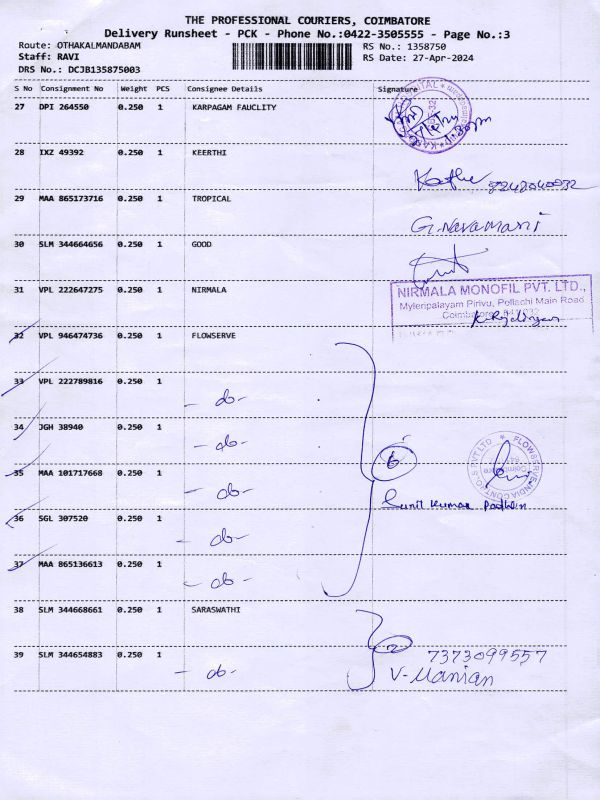 THE PROFESSIONAL COURIERS, COIMBATORE
Delivery Runsheet - PCK - Phone No.:0422-3505555 - Page No.:3
Route: OTHAKALMANDABAM RS No.: 1358750
Staff: RAVI RS Date: 27-Apr-2024
DRS No.: DCJB135875003
S No Consignment No Weight PCS Consignee Details Signature
27 DPI 264550 0.250 1 KARPAGAM FAUCLITY
28 IXZ 49392 0.250 1 KEERTHI
29 MAA 865173716 0.250 1 TROPICAL
G. Navamani
30 SLM 344664656 0.250 1 GOOD
31 VPL 222647275 0.250 1 NIRMALA
NIRMALA MONOFIL PVT. LTD.,
Myleripalayam Pirivu, Pollachi Main Road
Coimbatore
32 VPL 946474736 0.250 1 FLOWSERVE
33 VPL 222789816 0.250 1
- do -
34 JGH 38940 0.250 1
- do -
35 MAA 101717668 0.250 1
- do -
6
FLOWSERVE INDIA CONTROLS PVT LTD
Sunil Kumar
36 SGL 307520 0.250 1
- do -
37 MAA 865136613 0.250 1
- do -
38 SLM 344668661 0.250 1 SARASWATHI
2
7373099557
39 SLM 344654883 0.250 1
- do -
V-Manian